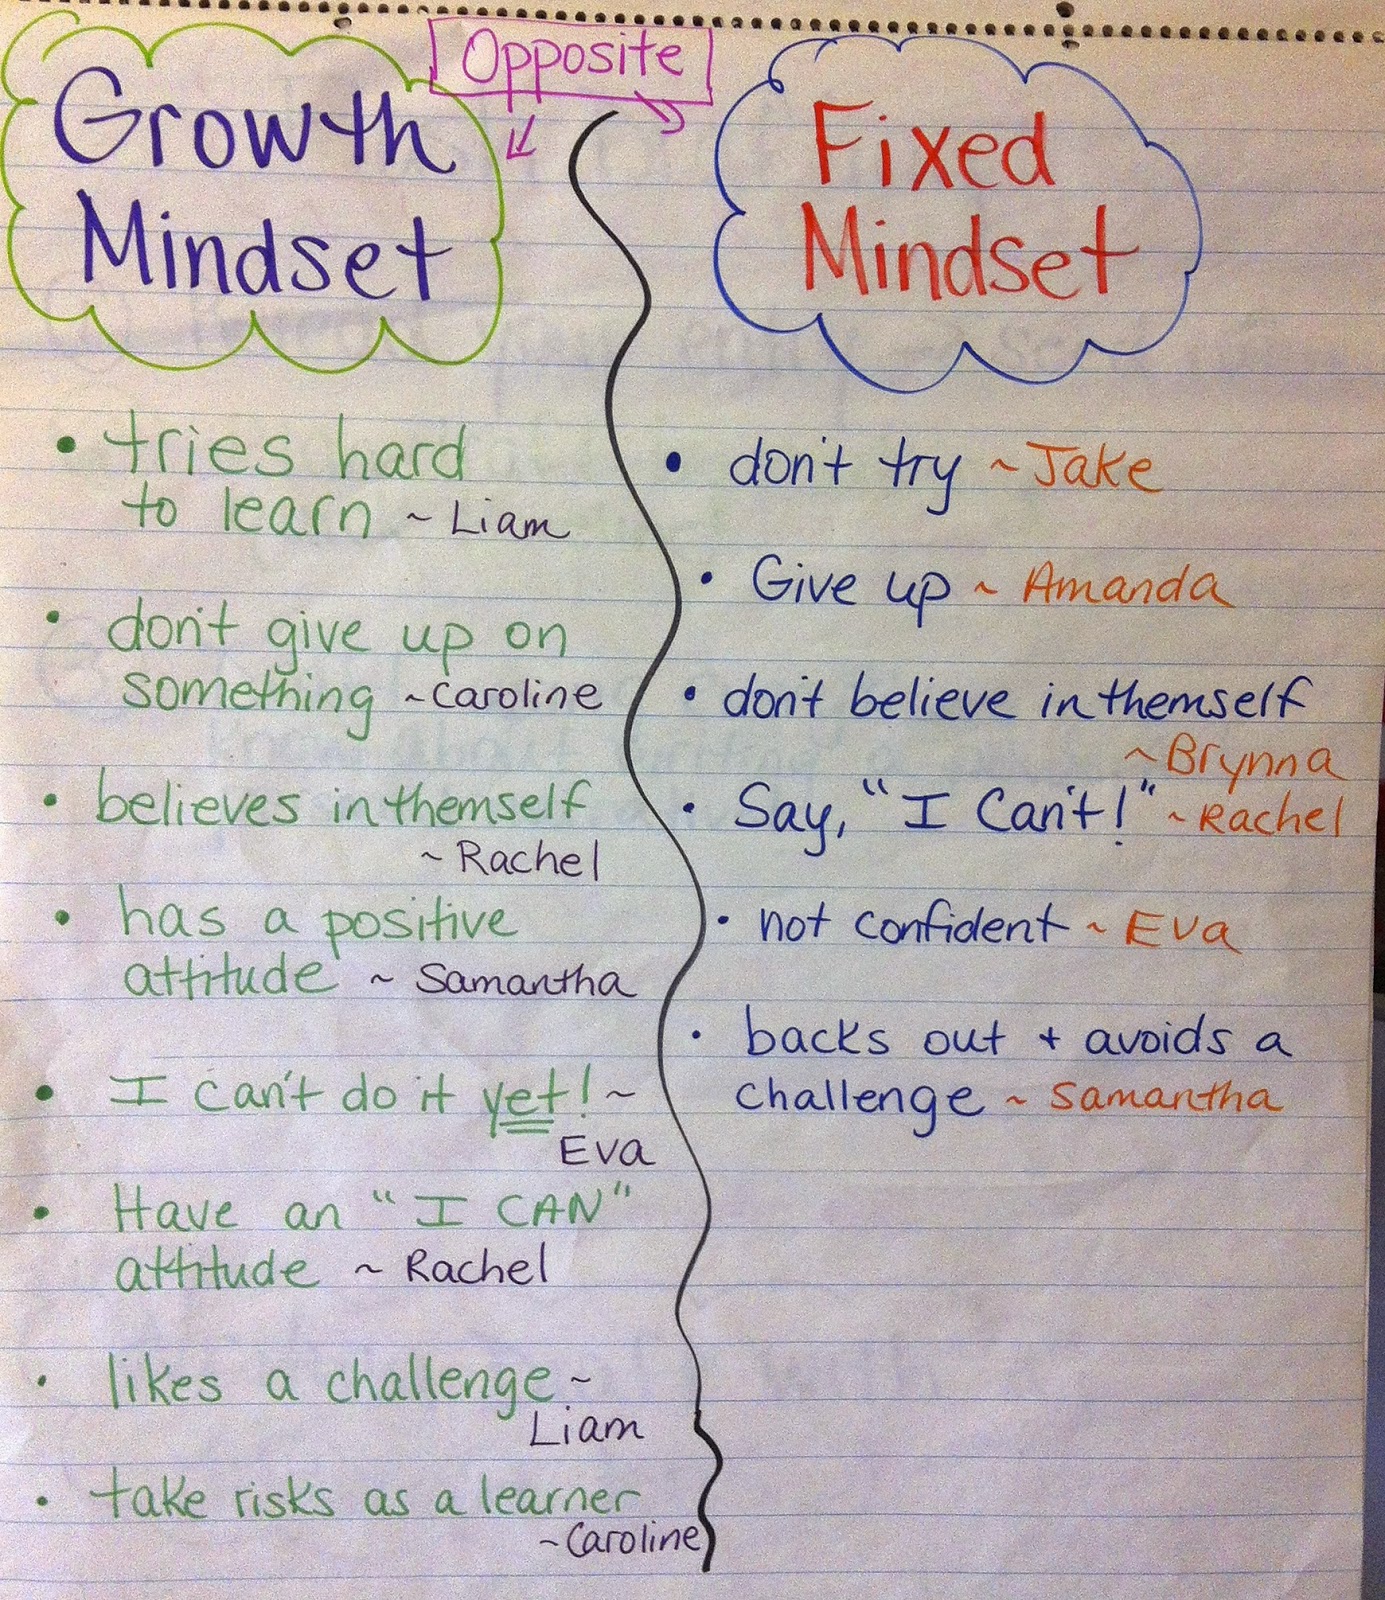 Opposite
Growth
Mindset
• tries hard
to learn ~ Liam
• don't give up on
something ~Caroline
• believes in themself
~ Rachel
• has a positive
attitude ~ Samantha
• I can't do it yet! ~
Eva
• Have an "I CAN"
attitude ~ Rachel
• likes a challenge ~
Liam
• take risks as a learner
~Caroline
Fixed
Mindset
• don't try ~ Jake
• Give up ~ Amanda
• don't believe in themself
~Brynna
• Say, "I Can't!" ~Rachel
• not confident ~ Eva
• backs out + avoids a
challenge ~ Samantha